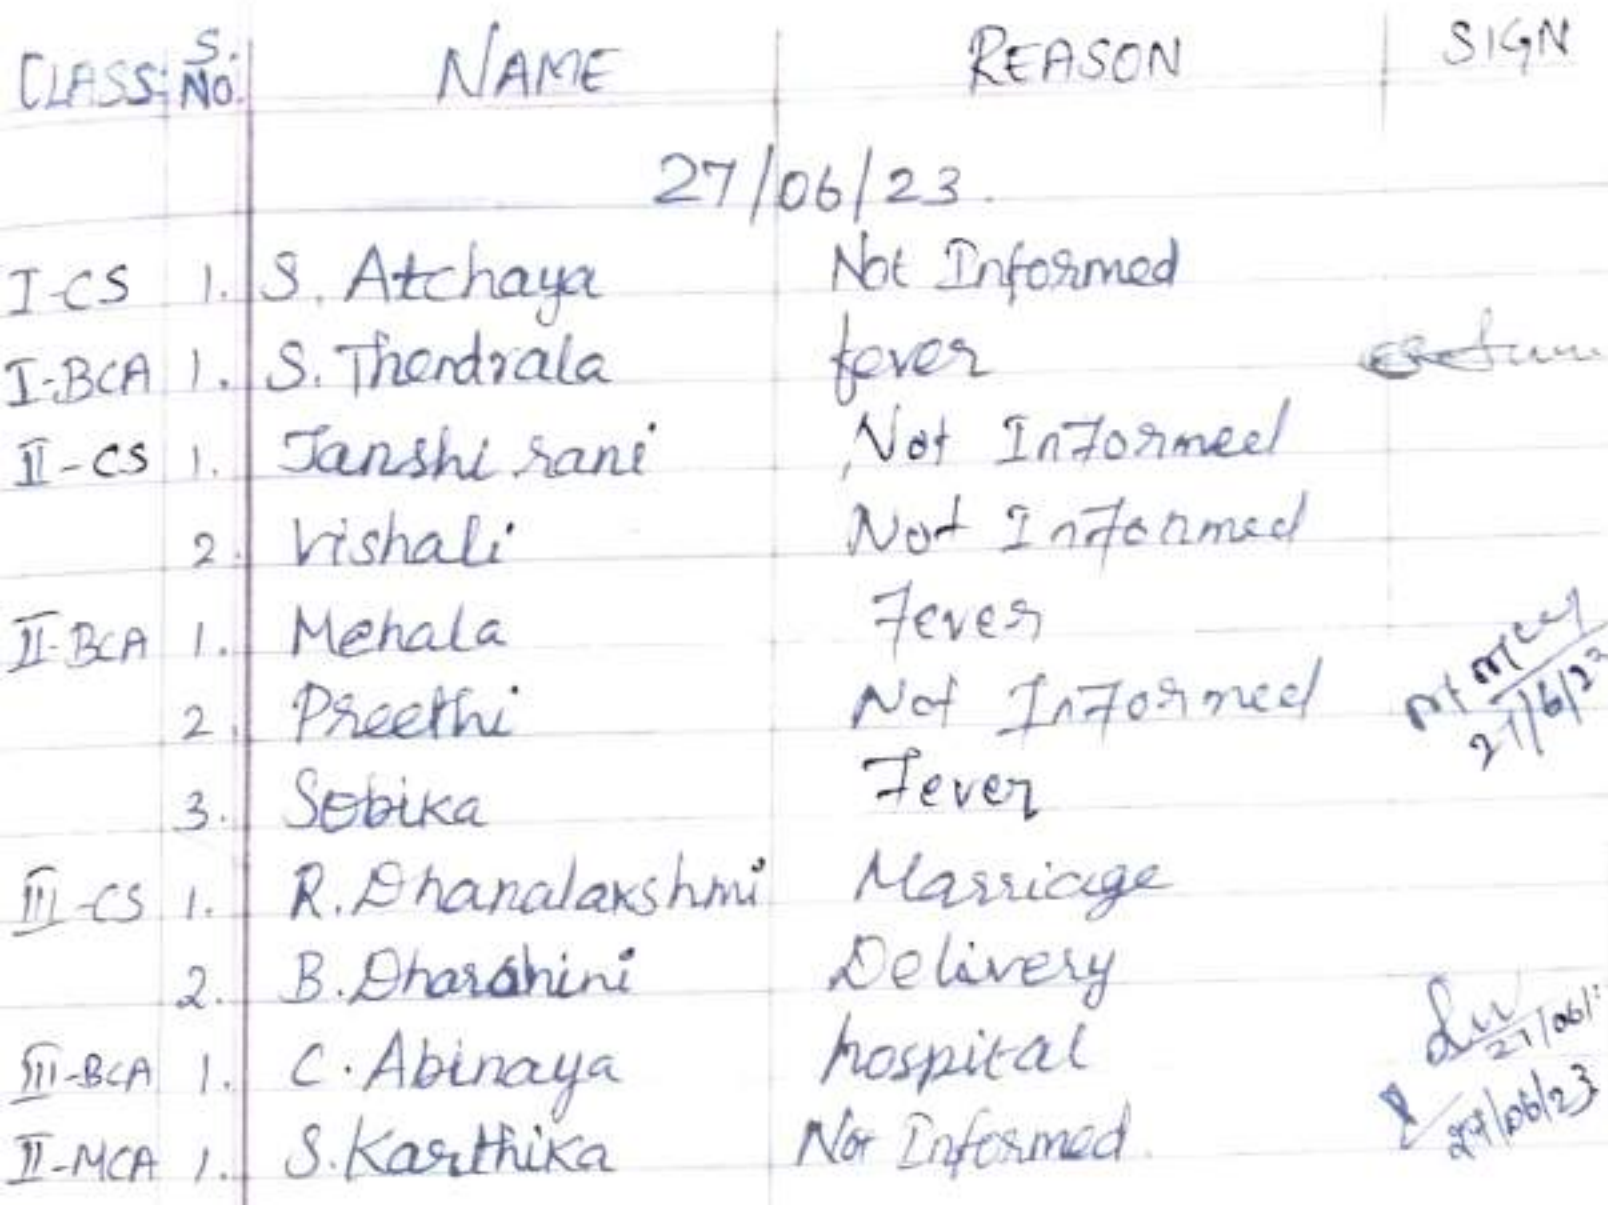 CLASS: S. NO. NAME REASON SIGN
27/06/23.
I-CS 1. S. Atchaya Not Informed
I-BCA 1. S. Thendrala fever
II-CS 1. Janshi rani Not Informed
2. Vishali Not Informed
II-BCA 1. Mehala Fever
2. Preethi Not Informed
21/6/23
3. Sobika Fever
III-CS 1. R. Dhanalakshmi Marriage
2. B. Dharshini Delivery
III-BCA 1. C. Abinaya hospital
27/06/
II-MCA 1. S. Karthika Not Informed.
27/06/23